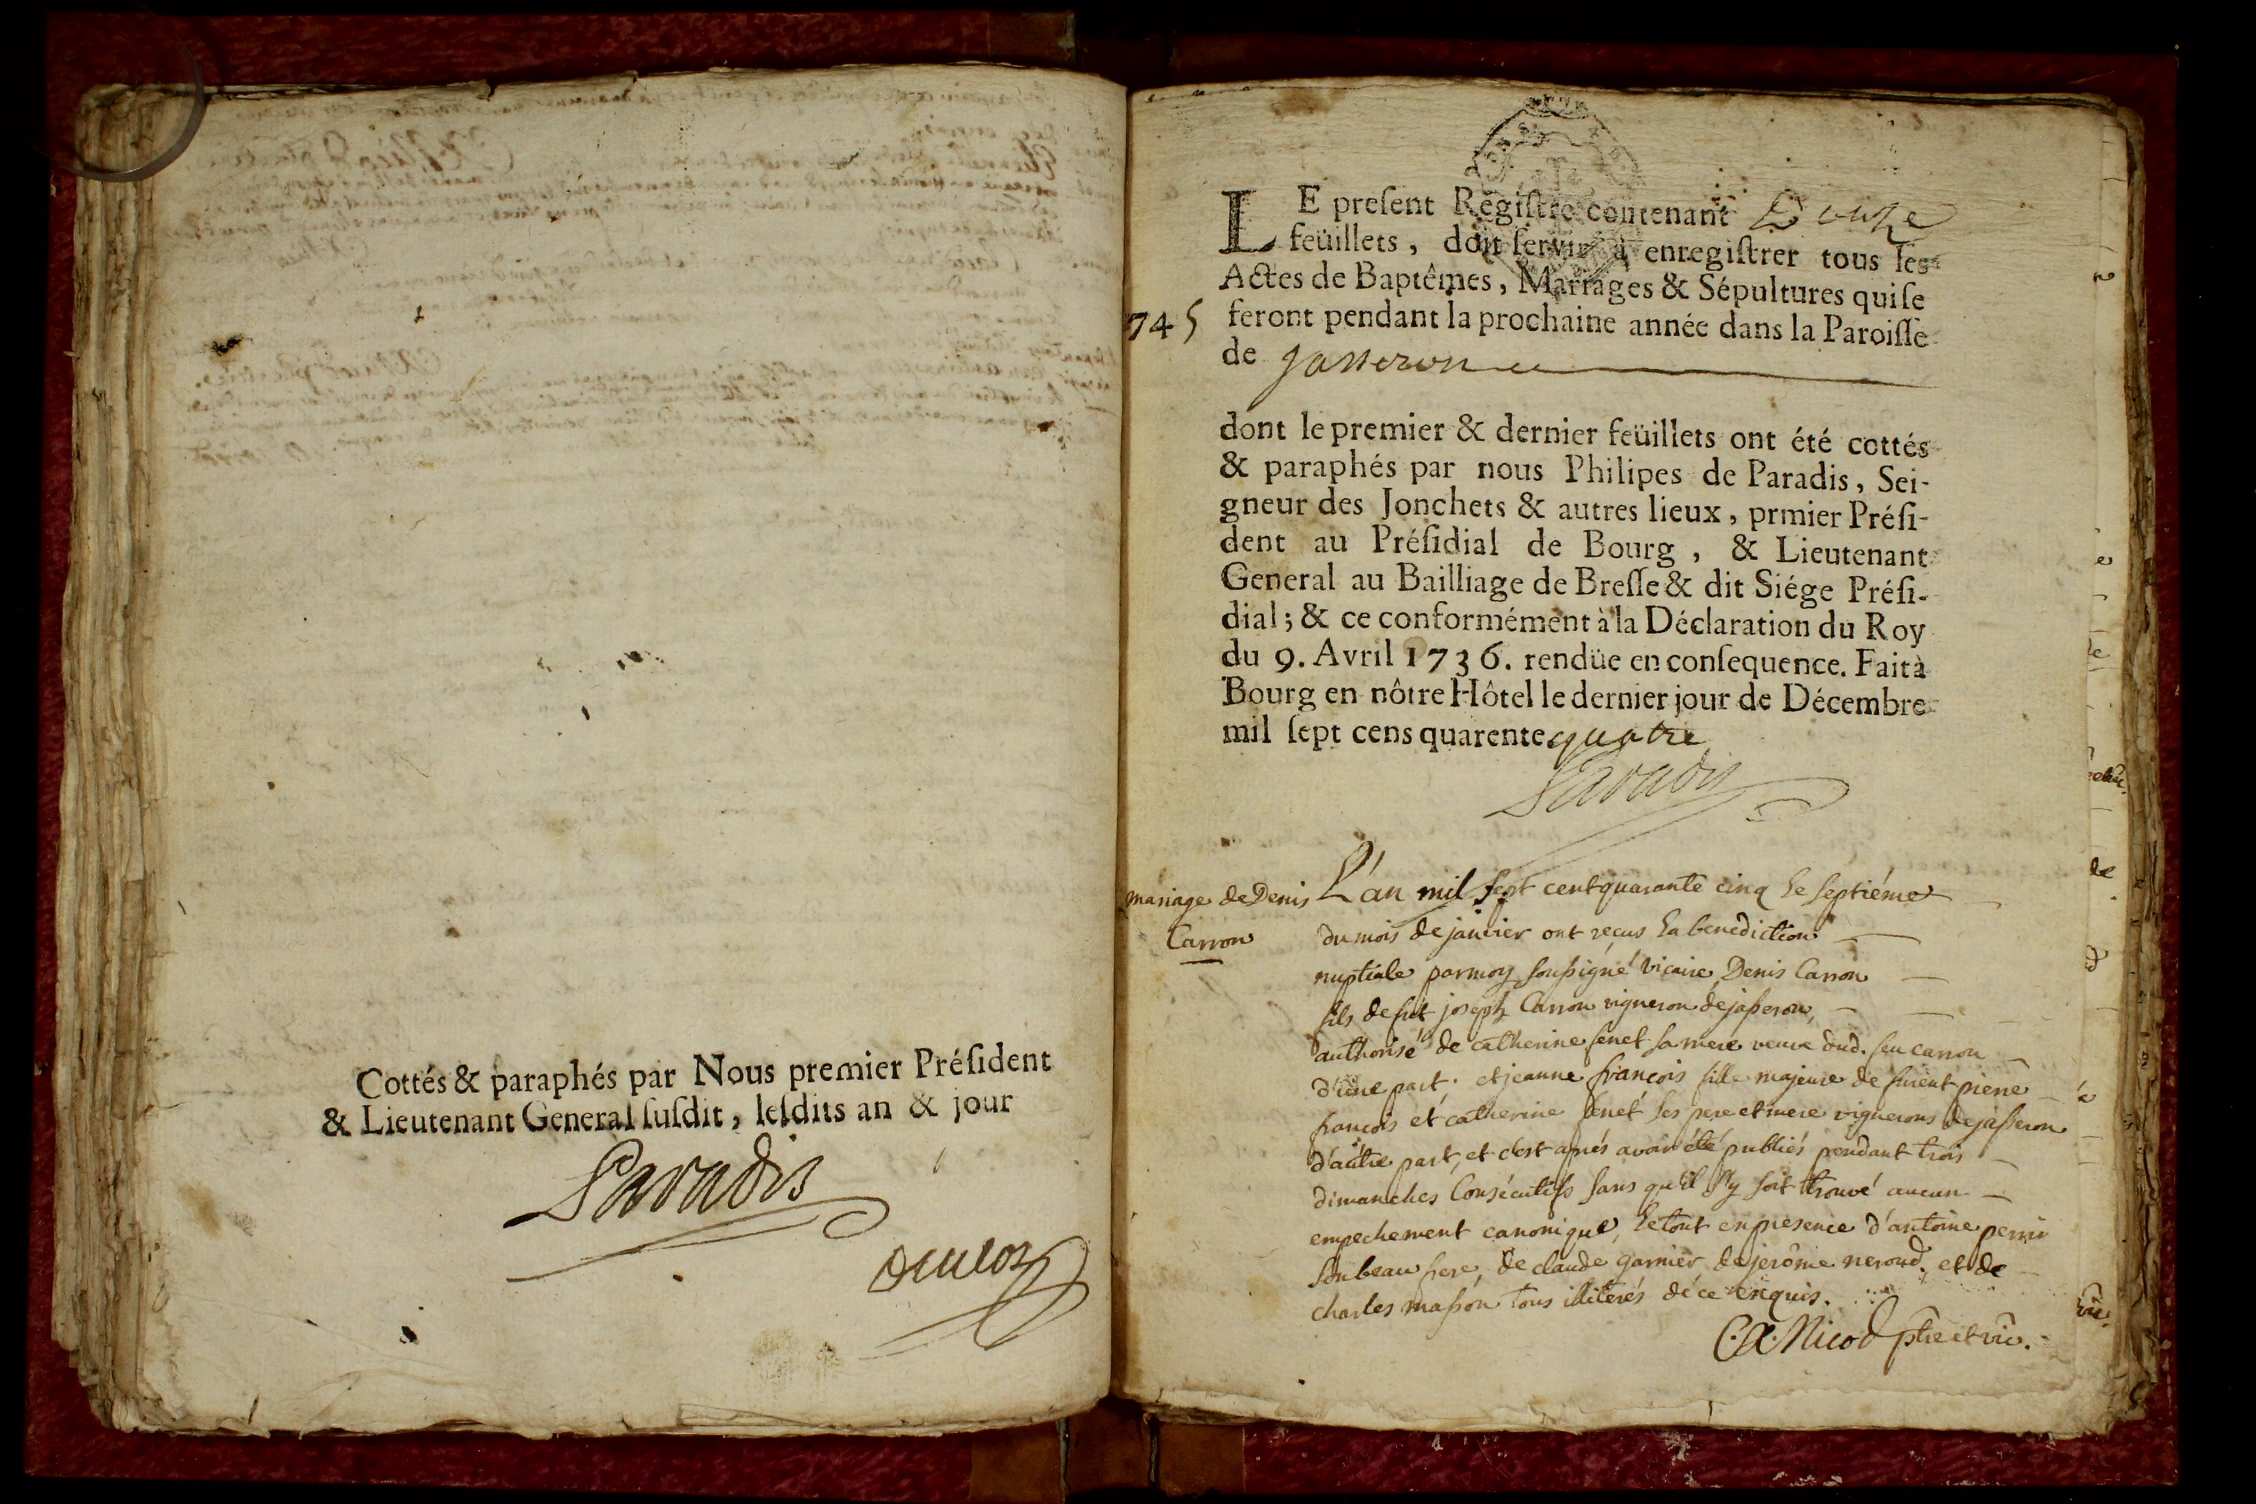 Cottés & paraphés par Nous premier Préſident
& Lieutenant General ſuſdit, leſdits an & jour
Paradis
LE preſent Regiſtre contenant Douze
feüillets, doit ſervir à enregiſtrer tous les
Actes de Baptêmes, Mariages & Sépultures qui ſe
745
feront pendant la prochaine année dans la Paroiſſe
de Jasseron
dont le premier & dernier feüillets ont été cottés
& paraphés par nous Philipes de Paradis, Sei-
gneur des Jonchets & autres lieux, prmier Préſi-
dent au Préſidial de Bourg, & Lieutenant
General au Bailliage de Breſſe & dit Siége Préſi-
dial; & ce conformément à la Déclaration du Roy
du 9. Avril 1736. rendüe en conſequence. Fait à
Bourg en nôtre Hôtel le dernier jour de Décembre
mil ſept cens quarente quatre
Paradis
mariage de Denis
Carron
L'an mil sept cent quarante cinq le septiéme
du mois de janvier ont reçus la benediction
nuptiale par moy soussigné vicaire Denis Carron
fils de fut joseph Carron vigneron de jasseron,
authorisé de catherine senet sa mere veuve dud. feu carron
d'une part; et jeanne françois fille majeure de furent pierre
françois et catherine senet ses pere et mere vignerons de jasseron
d'autre part, et c'est aprés avoir été publiés pendant trois
dimanches Consécutifs sans qu'il s'y soit trouvé aucun
empechement canonique, le tout en presence d'antoine perrin
son beau frere, de claude garnier de jerôme neroud, et de
charles masson tous illiterés de ce enquis.
C. A. Nicod ptre et vic.